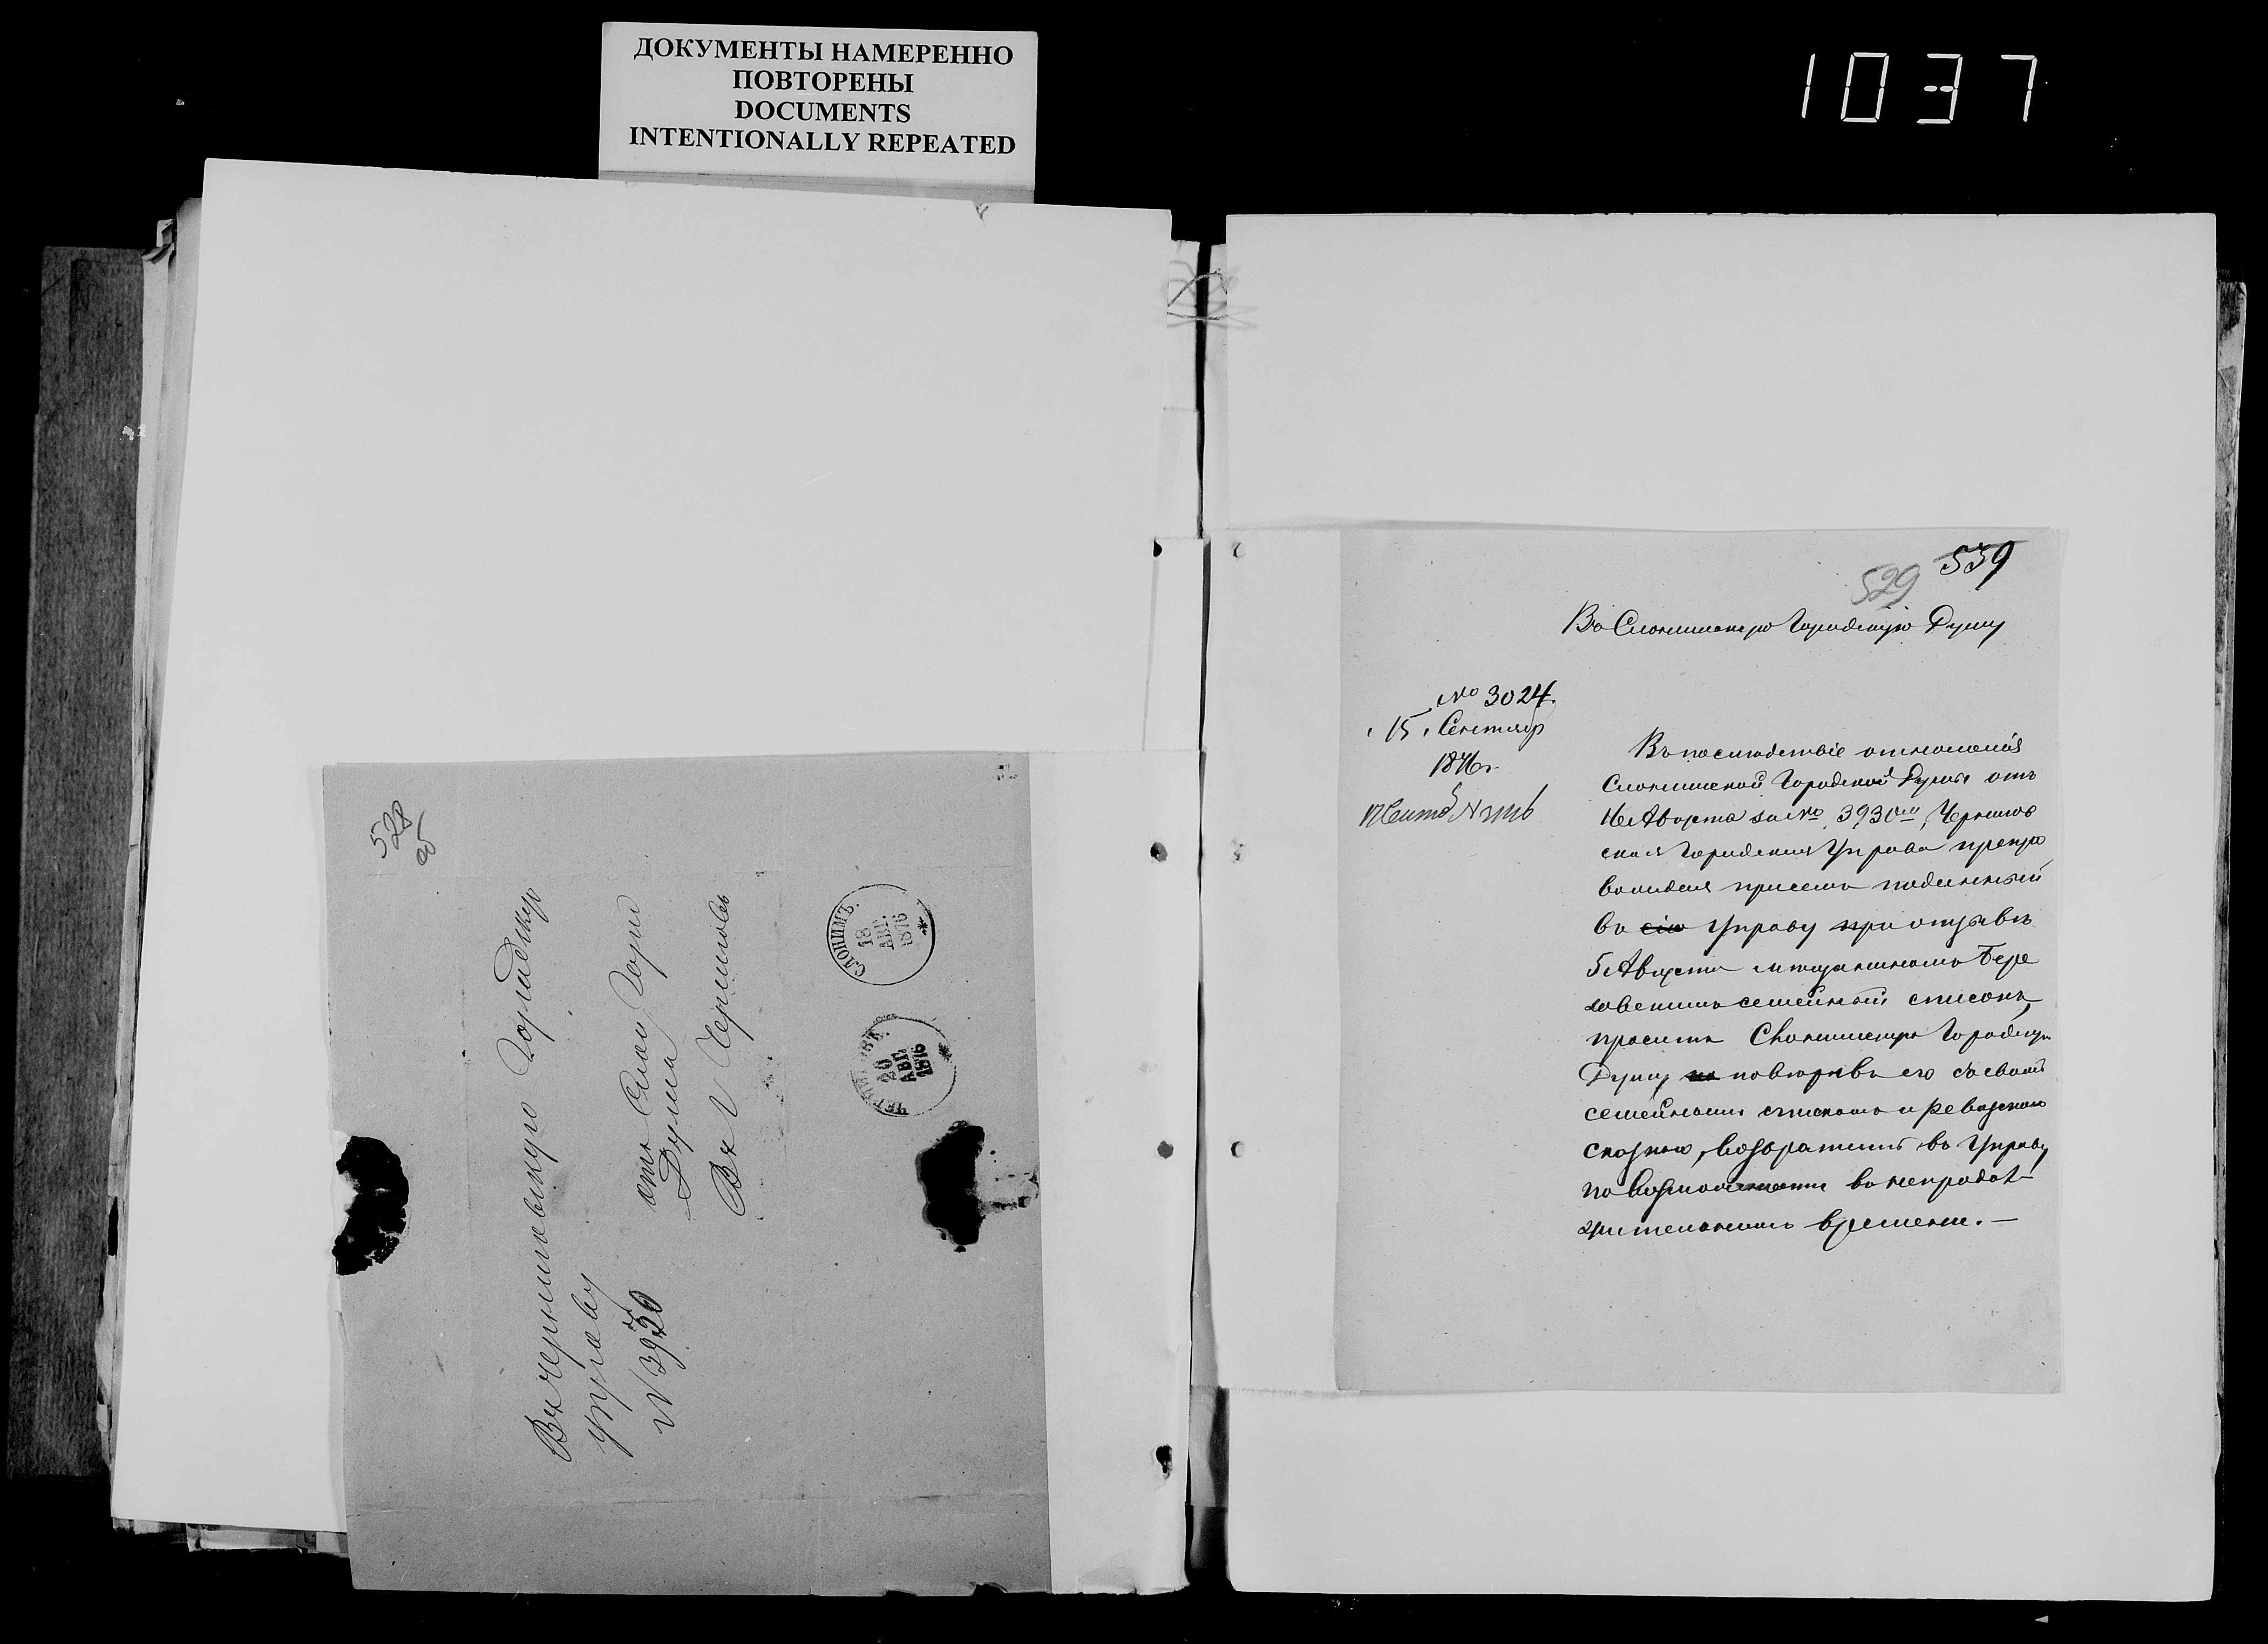 ДОКУМЕНТЫ НАМЕРЕННО
ПОВТОРЕНЫ
DOCUMENTS
INTENTIONALLY REPEATED
1037
528
об
Въ Черниговскую Городскую
управу
отъ Слон Горо
Дума
№ 3930
Въ Г Черниговъ
СЛОНИМЪ.
18
АВГ.
1876
20
АВГ.
1876
539
529
Въ Слонимскую Городскую Думу
№ 3024.
15 Сентябр
1876 г.
Въ последствіе отношенія
Слонимской Городской Думы отъ
16 Августа за № 3930, Чернигов
ская Городская Управа препро
вождая присемъ
въ сію Управу при отзывѣ
5 Августа Бере
зовскимъ семейный списокъ,
проситъ Слонимскую Городскую
Думу по повѣривъ его съ своимъ
семейнымъ спискомъ и ревизскою
сказкою, возвратить въ Управу
по возможности въ непродол-
жительномъ времени. —